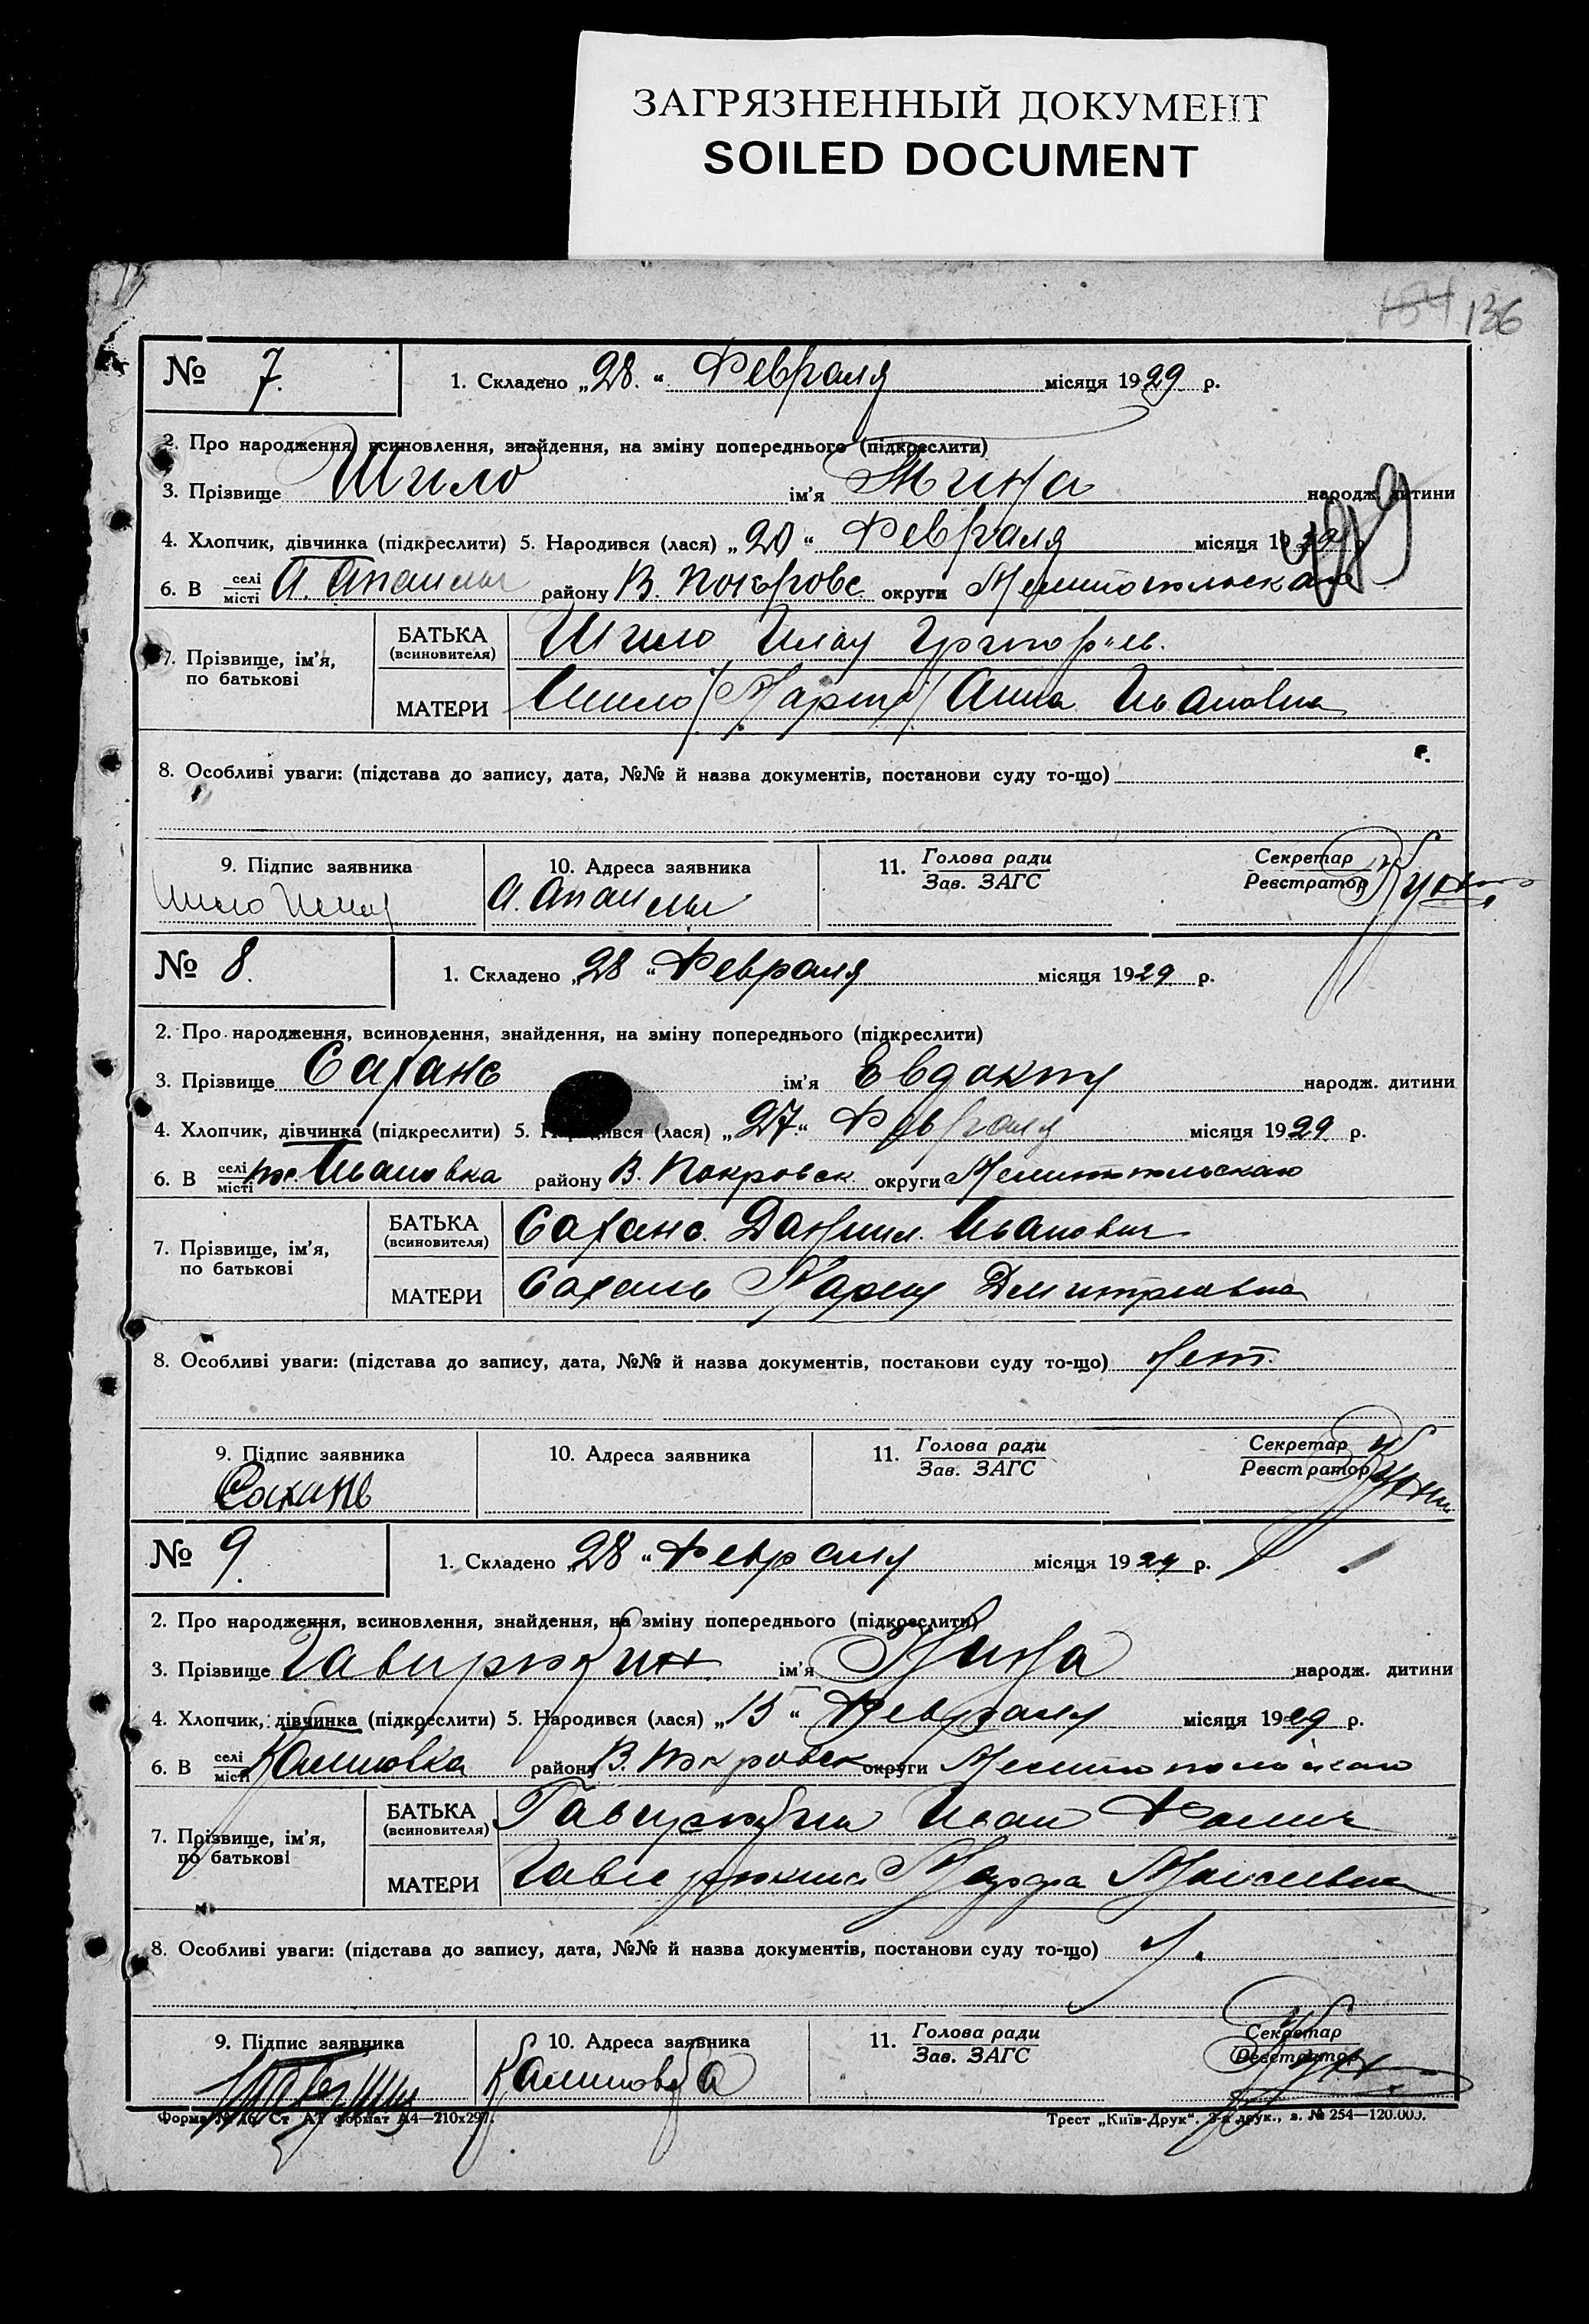 ЗАГРЯЗНЕННЫЙ ДОКУМЕНТ
SOILED DOCUMENT
134 136
№ 7. 1. Складено „28.“ Февраля місяця 1929 р.
2. Про народження, всиновлення, знайдення, на зміну попереднього (підкреслити)
3. Прізвище Шило ім’я народж. дитини
4. Хлопчик, дівчинка (підкреслити) 5. Народився (лася) „20“ Февраля місяця 1929 р.
6. В селі місті району В. Покровс округи Мелитопольского
7. Прізвище, ім’я, по батькові БАТЬКА (всиновителя) Шило
МАТЕРИ Шило Анна Ивановна
8. Особливі уваги: (підстава до запису, дата, №№ й назва документів, постанови суду то-що)
9. Підпис заявника 10. Адреса заявника 11. Голова ради Зав. ЗАГС Секретар Реєстратор
Шило
№ 8. 1. Складено „28“ Февраля місяця 1929 р.
2. Про народження, всиновлення, знайдення, на зміну попереднього (підкреслити)
3. Прізвище Сахань ім’я народж. дитини
4. Хлопчик, дівчинка (підкреслити) 5. Народився (лася) „27“ Февраля місяця 1929 р.
6. В селі місті Ивановка району В. Покровск округи Мелитопольскаго
7. Прізвище, ім’я, по батькові БАТЬКА (всиновителя) Сахань Даниил Иванович
МАТЕРИ Сахань Мария Дмитриевна
8. Особливі уваги: (підстава до запису, дата, №№ й назва документів, постанови суду то-що) Нет.
9. Підпис заявника 10. Адреса заявника 11. Голова ради Зав. ЗАГС Секретар Реєстратор
Сахань
№ 9. 1. Складено „28“ Февраля місяця 1929 р.
2. Про народження, всиновлення, знайдення, на зміну попереднього (підкреслити)
3. Прізвище ім’я Нина народж. дитини
4. Хлопчик, дівчинка (підкреслити) 5. Народився (лася) „15“ Февраля місяця 1929 р.
6. В селі місті району В. Покровск округи
7. Прізвище, ім’я, по батькові БАТЬКА (всиновителя) Иван Фомич
МАТЕРИ Марфа Моисеевна
8. Особливі уваги: (підстава до запису, дата, №№ й назва документів, постанови суду то-що)
9. Підпис заявника 10. Адреса заявника 11. Голова ради Зав. ЗАГС Секретар Реєстратор
Форма формат А4—210х297.
Трест „Київ-Друк“. друк., з. № 254—120.000.